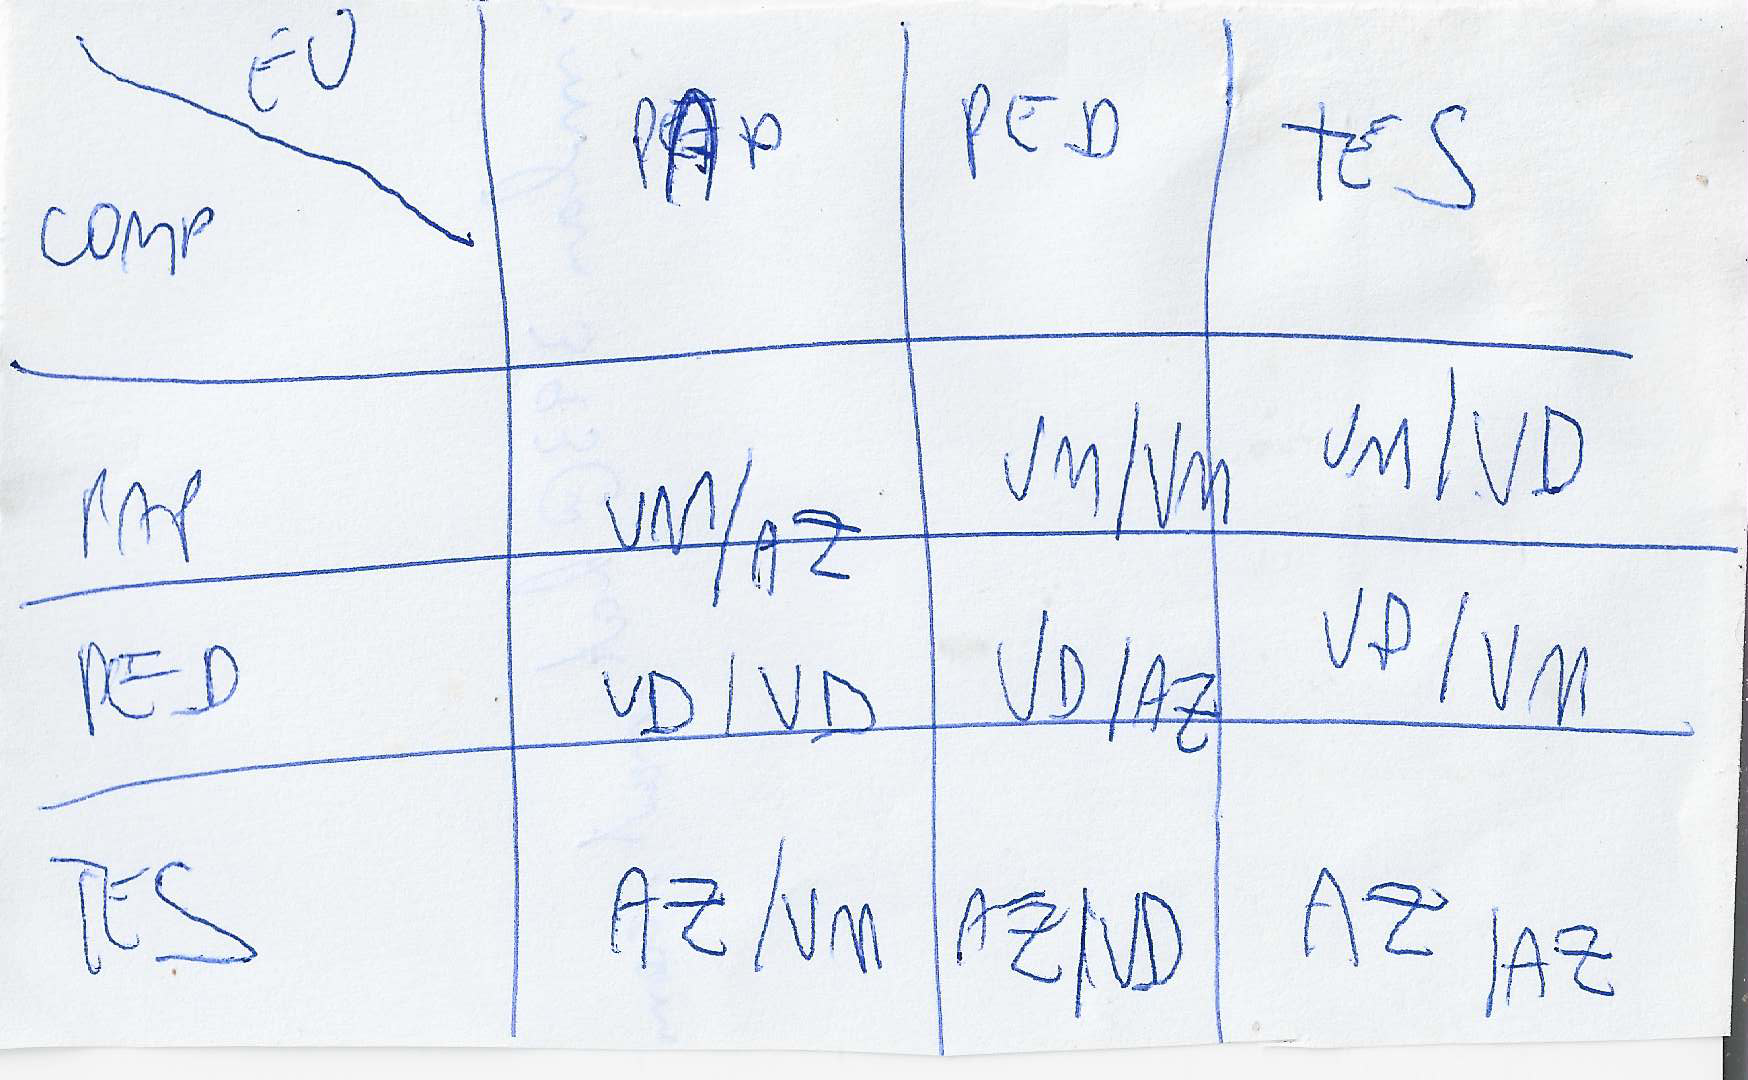 EU PAP PED TES
COMP
PAP VM/AZ VM/VM VM/VD
PED VD/VD VD/AZ VD/VM
TES AZ/VM AZ/VD AZ/AZ